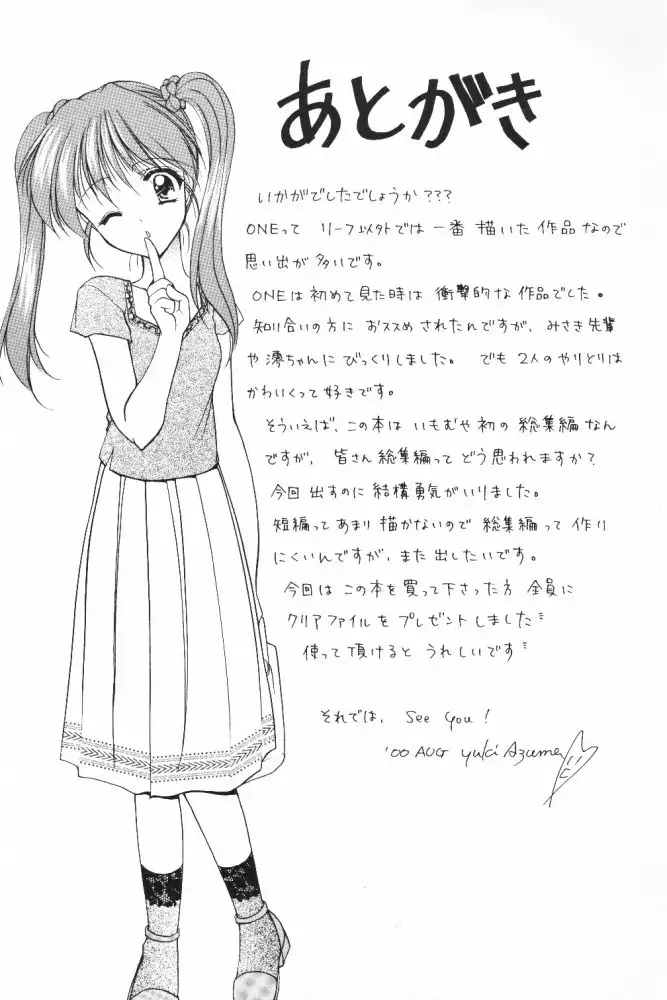 あとがき
いかがでしたでしょうか???
ONEって リーフ以外では 一番 描いた 作品 なので
思い出が 多いです。
ONEは 初めて 見た 時は 衝撃的な 作品でした。
知り合いの方に おススメ されたんですが、みさき先輩
や 澪ちゃんに びっくりしました。 でも 2人の やりとりは
かわいくって 好きです。
そういえば、この本は いもむや 初の 総集編 なん
ですが、 皆さん 総集編って どう思われますか?
今回 出すのに 結構 勇気が いりました。
短編って あまり 描かないので 総集編って 作り
にくいんですが、また 出したいです。
今回は この本を 買って 下さった方 全員に
クリアファイルを プレゼント しました〃
使って 頂けると うれしいです〃
それでは、 See you!
'00 AUG yuki Azuma